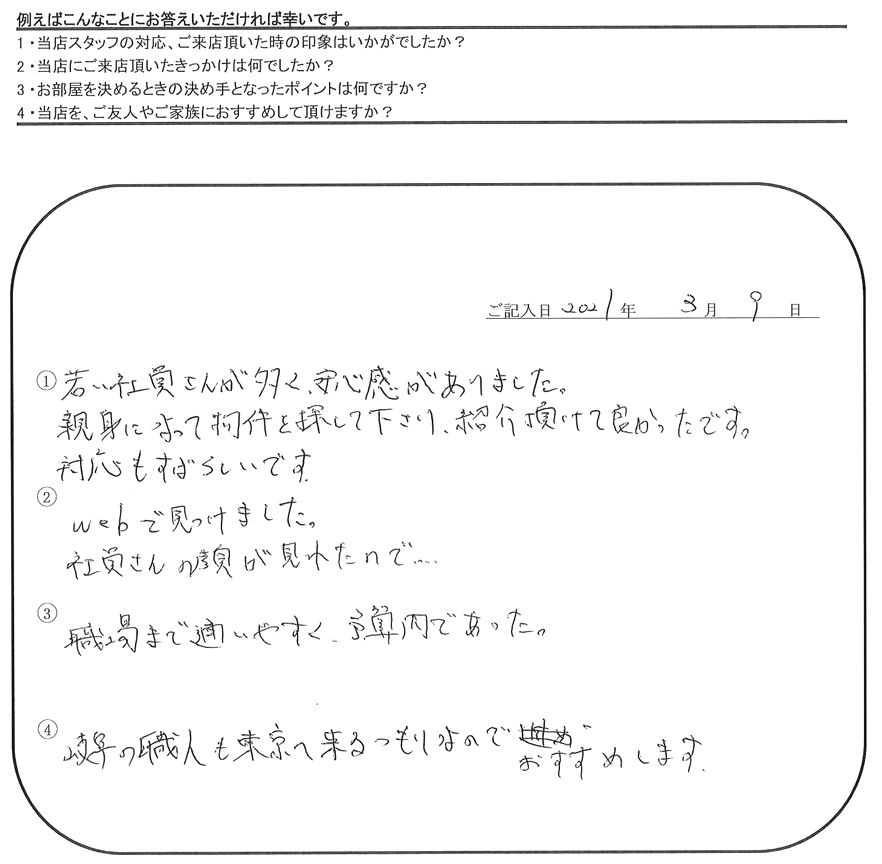 例えばこんなことにお答えいただければ幸いです。
1・当店スタッフの対応、ご来店頂いた時の印象はいかがでしたか？
2・当店にご来店頂いたきっかけは何でしたか？
3・お部屋を決めるときの決め手となったポイントは何ですか？
4・当店を、ご友人やご家族におすすめして頂けますか？
ご記入日 2021年 3月 9日
① 若い社員さんが多く、安心感がありました。
親身になって物件を探して下さり、紹介頂けて良かったです。
対応もすばらしいです
②
webで見つけました。
社員さんの顔が見れたので....
③
職場まで通いやすく、予算内であった。
④
の職人も東京へ来るつもりなので
おすすめします.